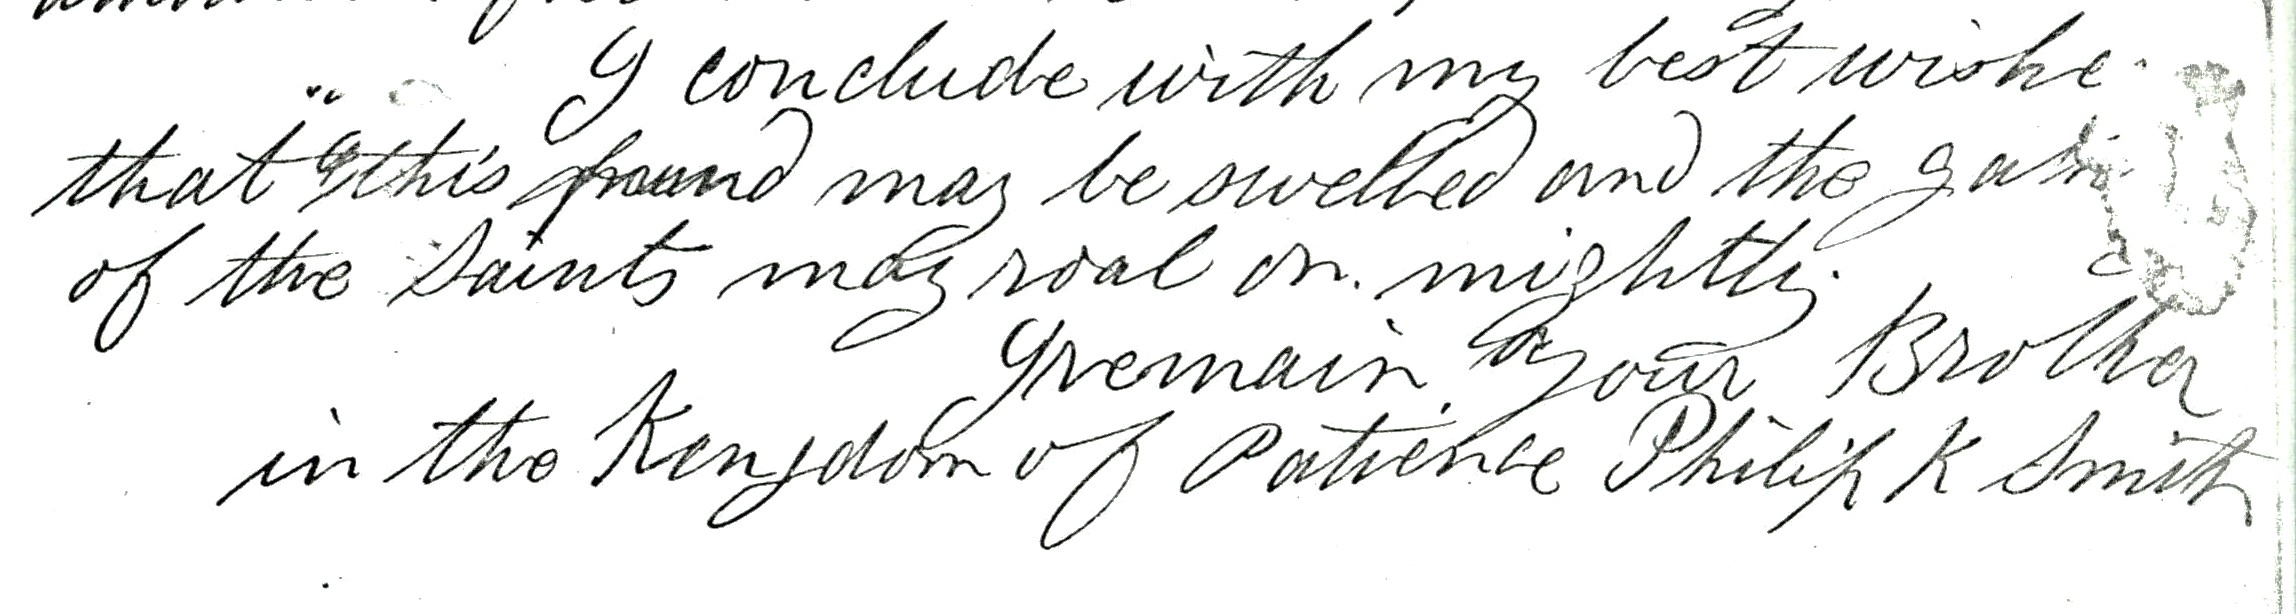 I conclude with my best wishe
that this found may be swelled and the
of the Saints may roal on mightly.
I remain your Brother
in the Kengdom of Patience Philip K Smith